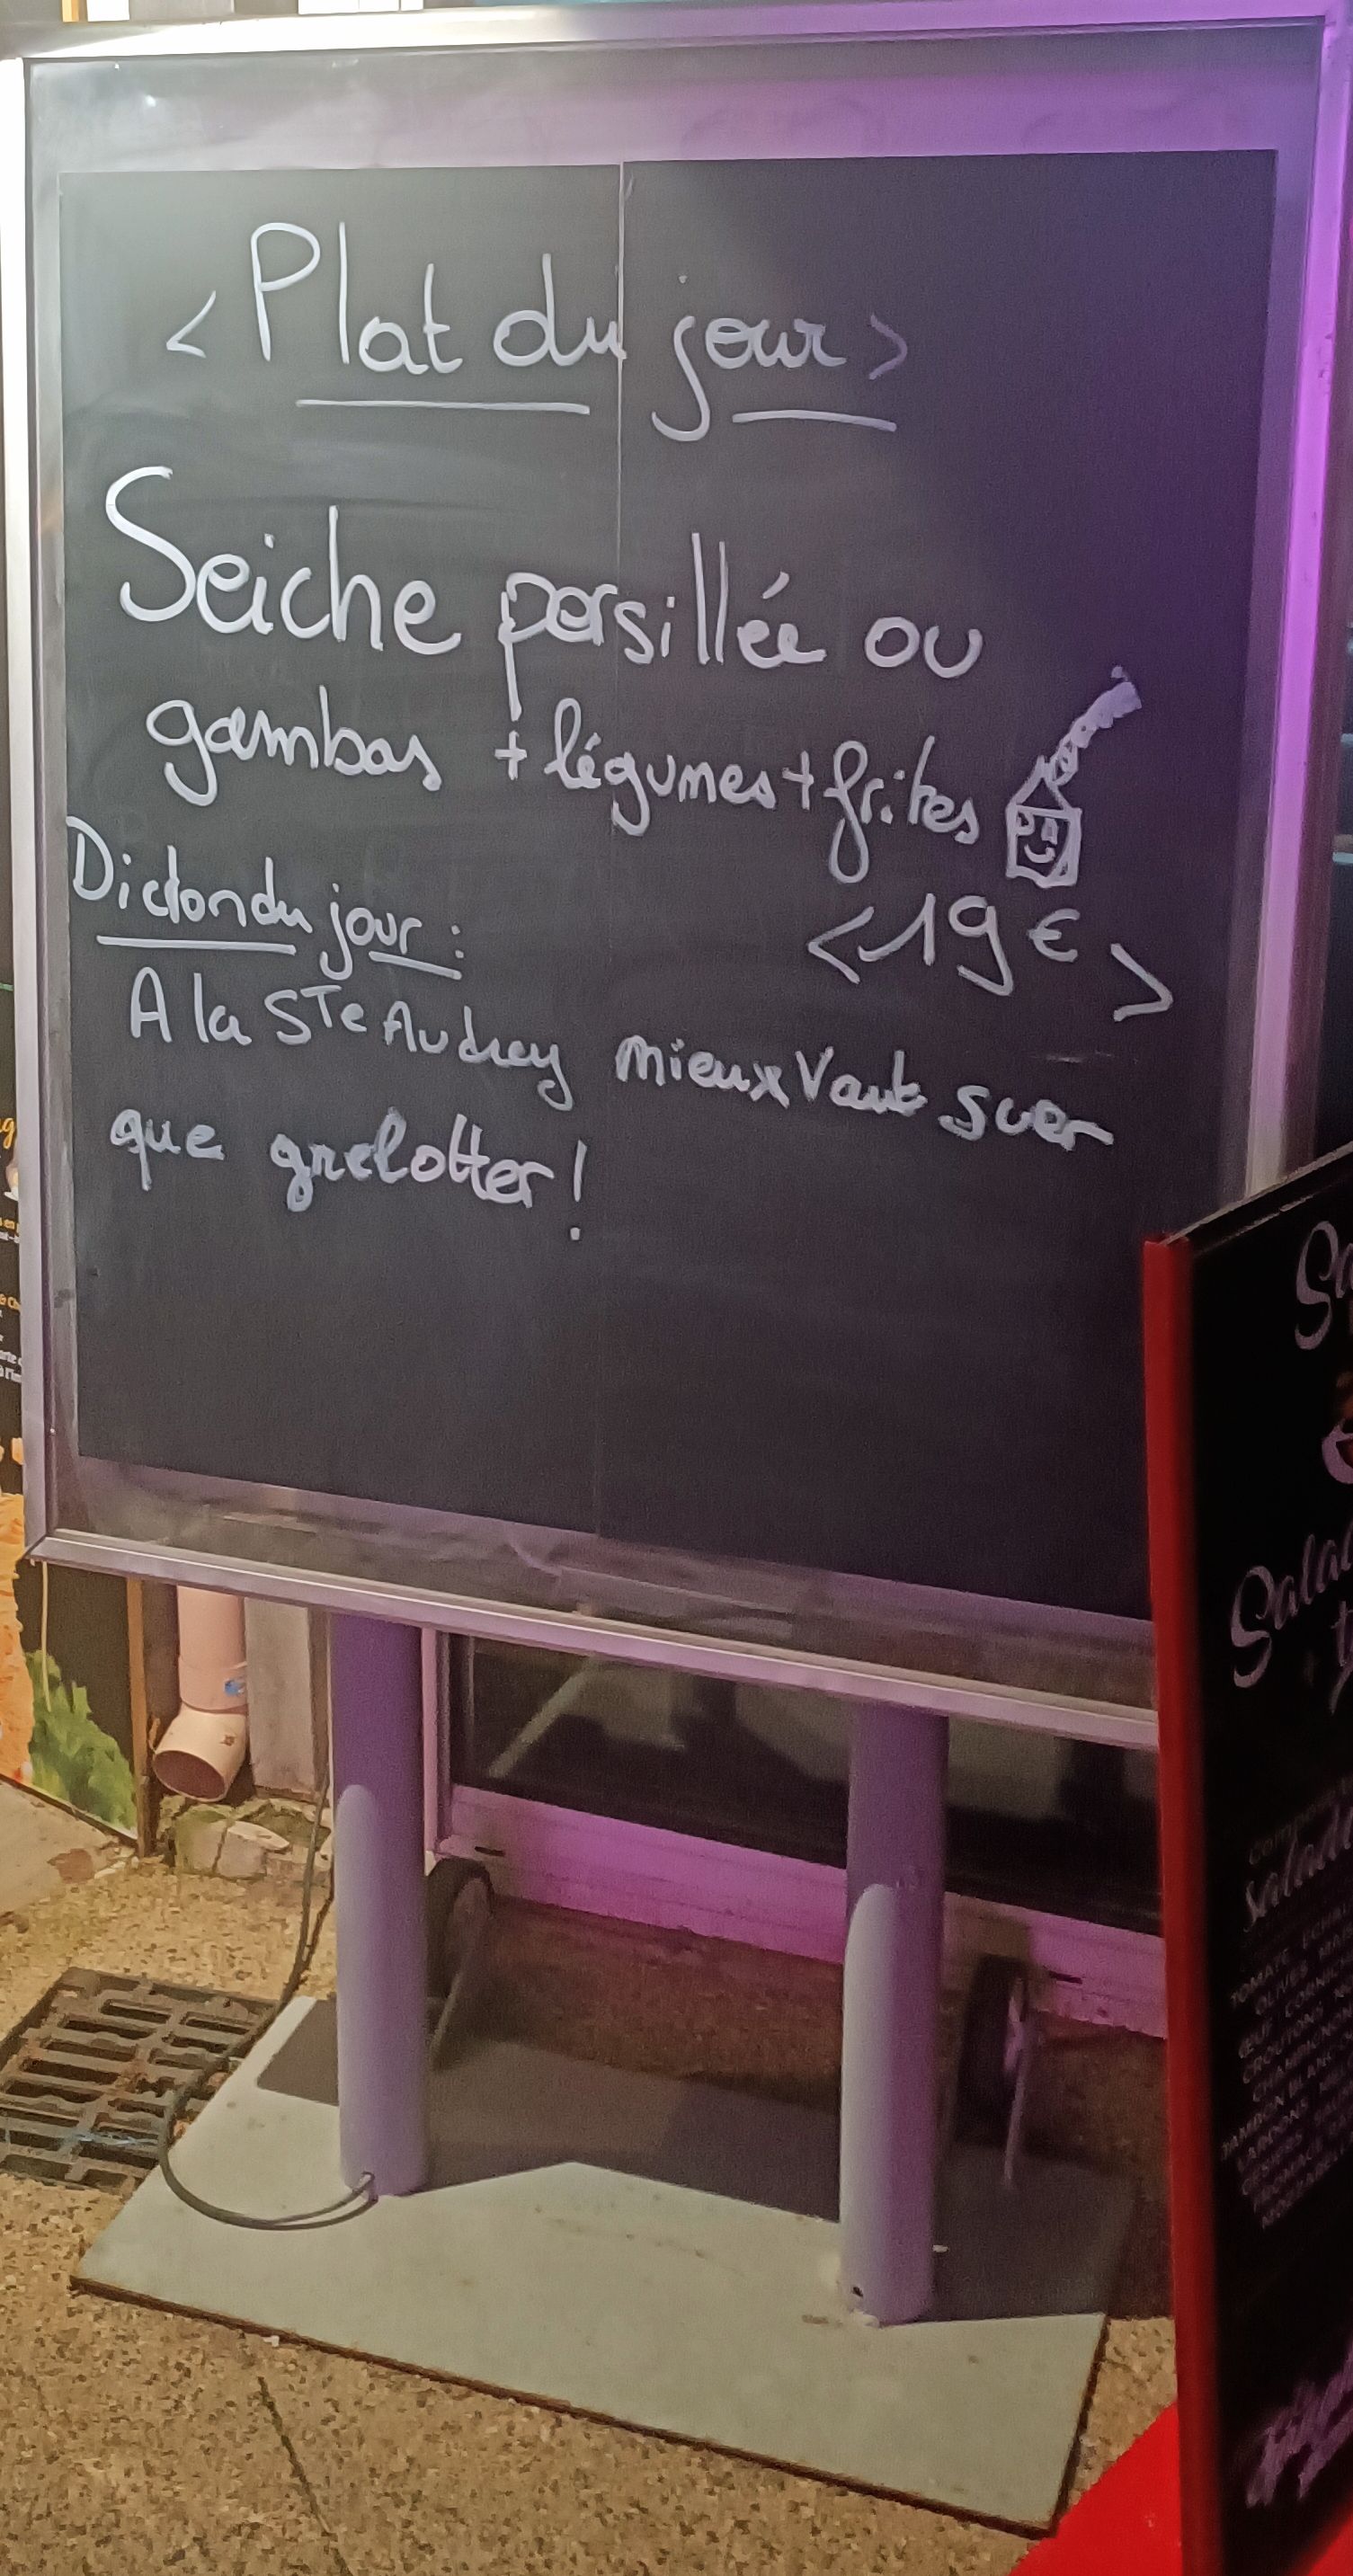 < Plat du jour >
Seiche persillée ou
gambas + légumes + frites
< 19 € >
Dicton du jour :
A la STe Audrey mieux Vaut suer
que grelotter !
Salad
salade
TOMATE
OLIVES
ŒUF CORNICH
CROUTONS
CHAMPIGNON
JAMBON BLANC
LARDONS
GESIERS
FROMAGE